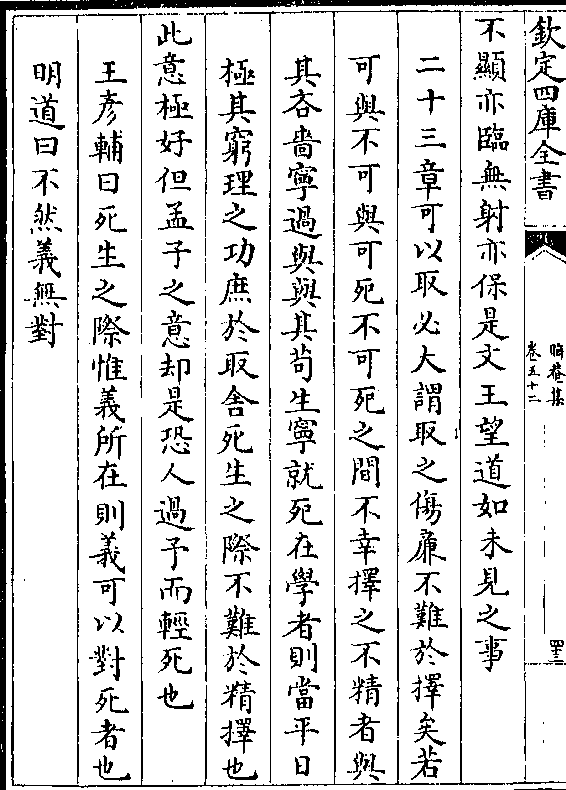 欽定四庫全書
晦菴集
卷五十二
不顯亦臨無射亦保是文王望道如未見之事
二十三章可以取必大謂取之傷廉不難於擇矣若
可與不可與可死不可死之間不幸擇之不精者與
其吝嗇寧過與與其苟生寧就死在學者則當平日
極其窮理之功庶於取舍死生之際不難於精擇也
此意極好但孟子之意却是恐人過予而輕死也
王彥輔曰死生之際惟義所在則義可以對死者也
明道曰不然義無對